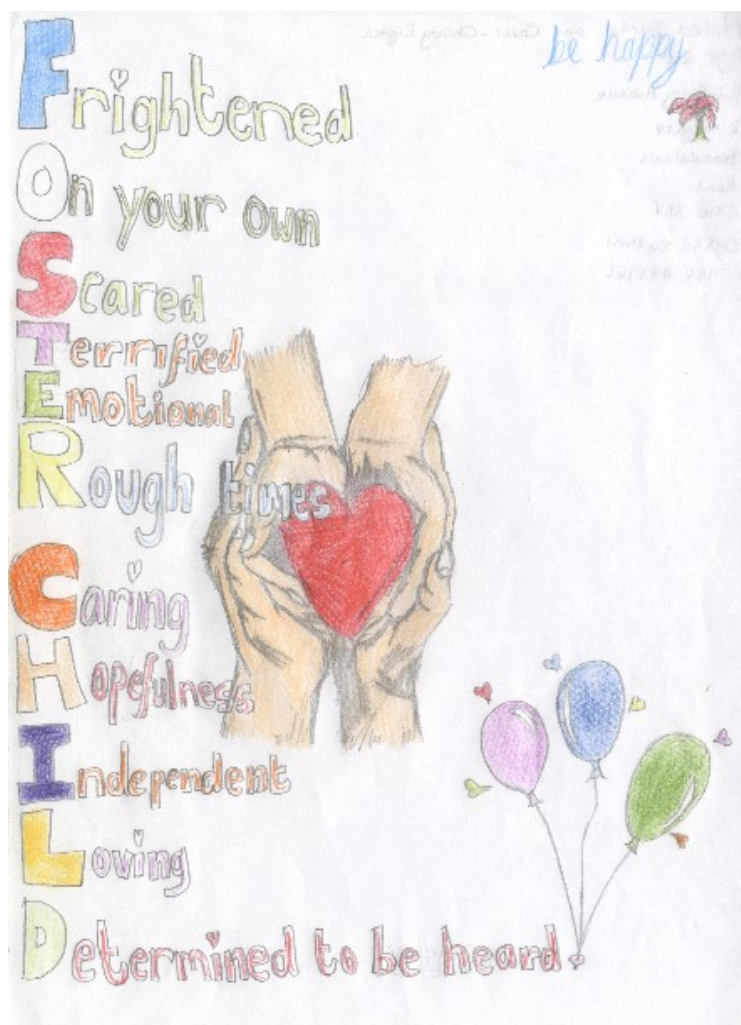 be happy
Frightened
On your own
Scared
Terrified
Emotional
Rough times
Caring
Hopefulness
Independent
Loving
Determined to be heard